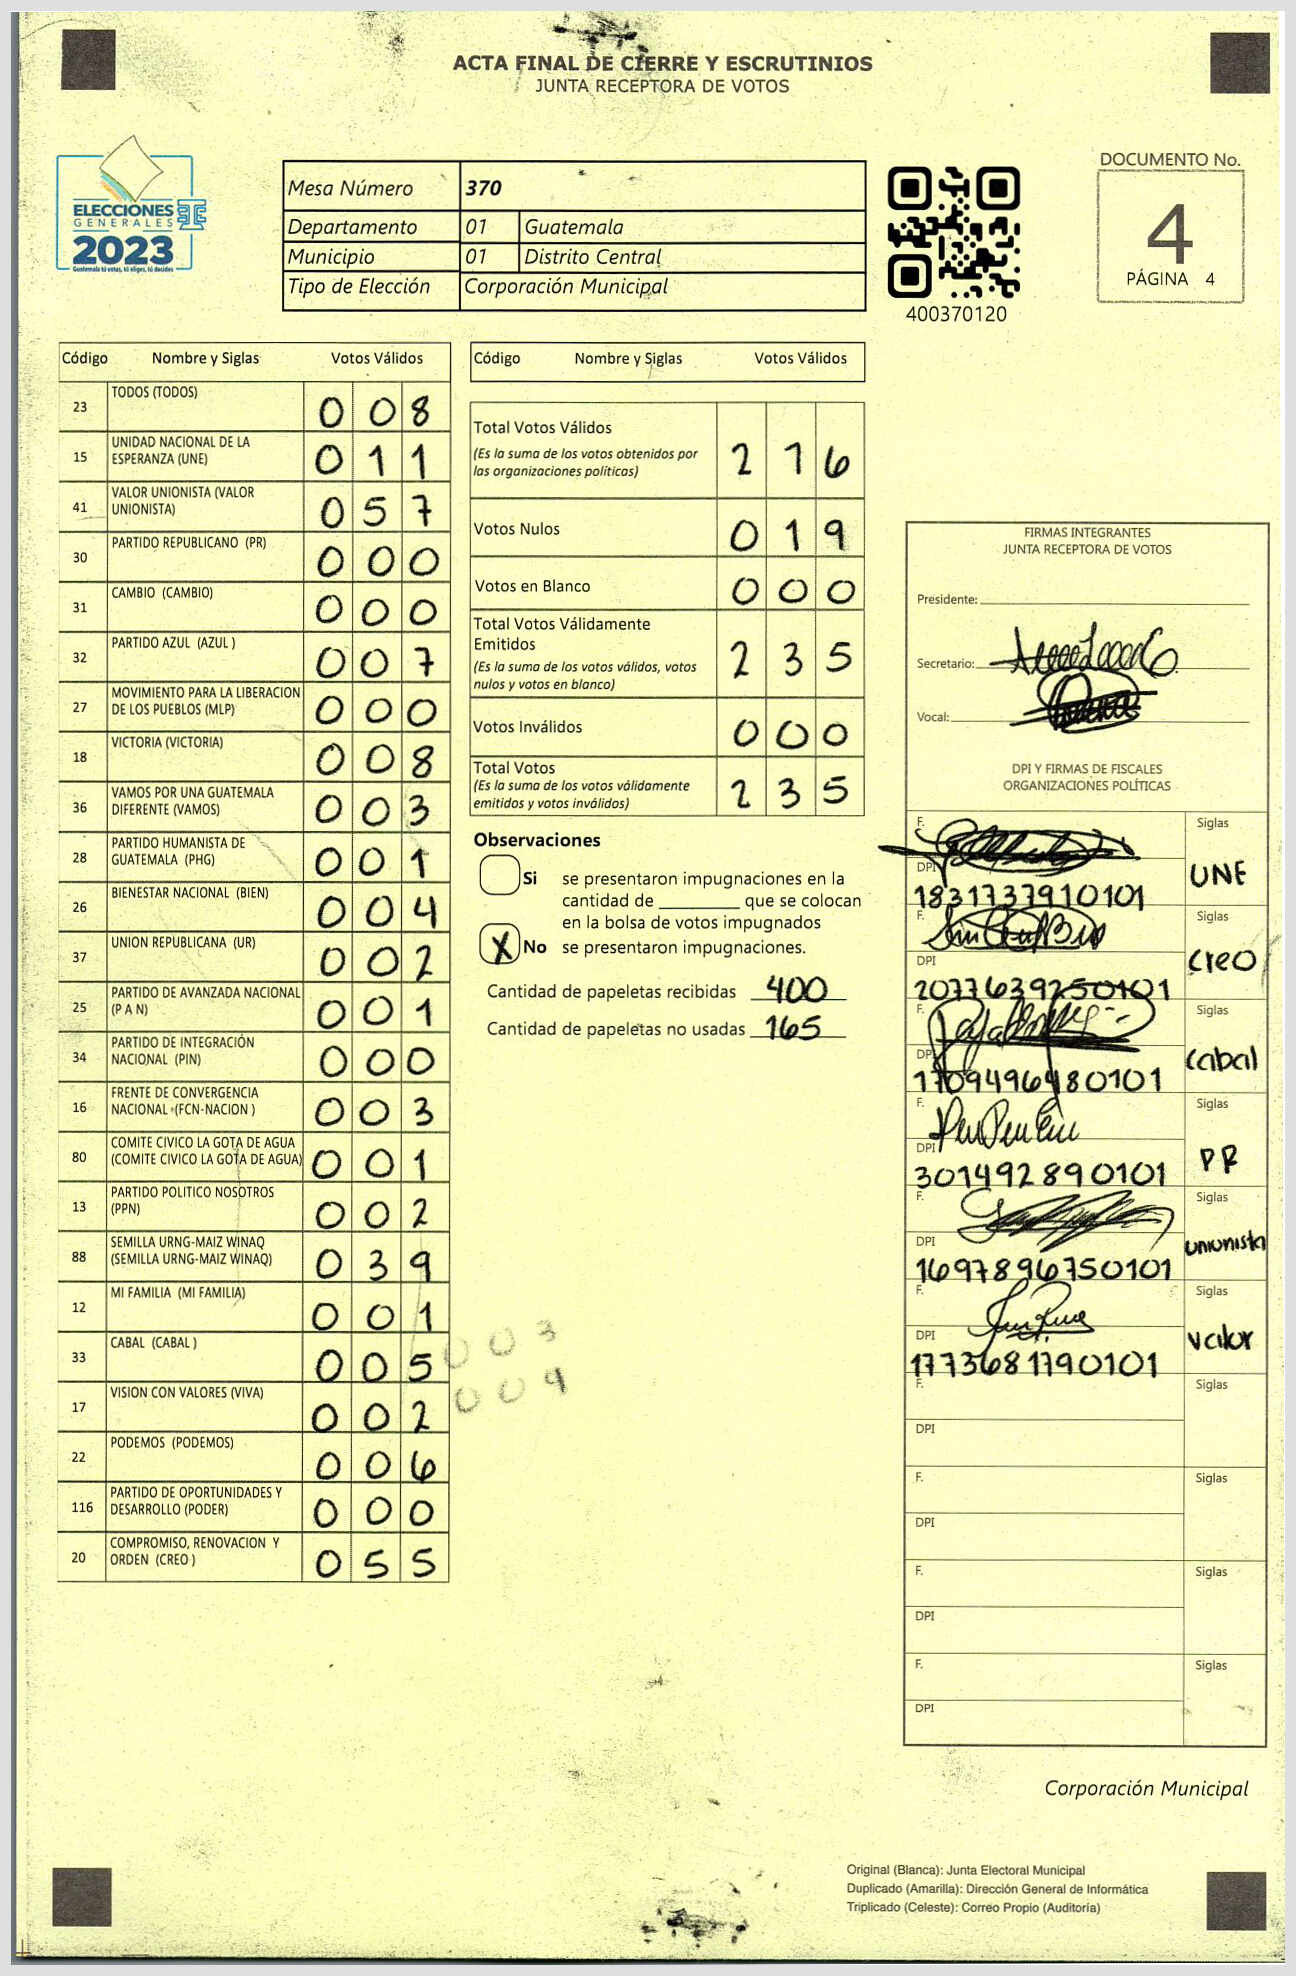 ACTA FINAL DE CIERRE Y ESCRUTINIOS
JUNTA RECEPTORA DE VOTOS
ELECCIONES
GENERALES
2023
Guatemala tú votas, tú eliges, tú decides
Mesa Número 370
Departamento 01 Guatemala
Municipio 01 Distrito Central
Tipo de Elección Corporación Municipal
400370120
DOCUMENTO No.
4
PÁGINA 4
Código Nombre y Siglas Votos Válidos
23 TODOS (TODOS) 0 0 8
15 UNIDAD NACIONAL DE LA
ESPERANZA (UNE) 0 1 1
41 VALOR UNIONISTA (VALOR
UNIONISTA) 0 5 7
30 PARTIDO REPUBLICANO (PR) 0 0 0
31 CAMBIO (CAMBIO) 0 0 0
32 PARTIDO AZUL (AZUL ) 0 0 7
27 MOVIMIENTO PARA LA LIBERACION
DE LOS PUEBLOS (MLP) 0 0 0
18 VICTORIA (VICTORIA) 0 0 8
36 VAMOS POR UNA GUATEMALA
DIFERENTE (VAMOS) 0 0 3
28 PARTIDO HUMANISTA DE
GUATEMALA (PHG) 0 0 1
26 BIENESTAR NACIONAL (BIEN) 0 0 4
37 UNION REPUBLICANA (UR) 0 0 2
25 PARTIDO DE AVANZADA NACIONAL
(P A N) 0 0 1
34 PARTIDO DE INTEGRACIÓN
NACIONAL (PIN) 0 0 0
16 FRENTE DE CONVERGENCIA
NACIONAL (FCN-NACION ) 0 0 3
80 COMITE CIVICO LA GOTA DE AGUA
(COMITE CIVICO LA GOTA DE AGUA) 0 0 1
13 PARTIDO POLITICO NOSOTROS
(PPN) 0 0 2
88 SEMILLA URNG-MAIZ WINAQ
(SEMILLA URNG-MAIZ WINAQ) 0 3 9
12 MI FAMILIA (MI FAMILIA) 0 0 1
33 CABAL (CABAL ) 0 0 5
17 VISION CON VALORES (VIVA) 0 0 2
22 PODEMOS (PODEMOS) 0 0 6
116 PARTIDO DE OPORTUNIDADES Y
DESARROLLO (PODER) 0 0 0
20 COMPROMISO, RENOVACION Y
ORDEN (CREO ) 0 5 5
0 0 3
0 0 4
Código Nombre y Siglas Votos Válidos
Total Votos Válidos
(Es la suma de los votos obtenidos por
las organizaciones políticas) 2 1 6
Votos Nulos 0 1 9
Votos en Blanco 0 0 0
Total Votos Válidamente
Emitidos
(Es la suma de los votos válidos, votos
nulos y votos en blanco) 2 3 5
Votos Inválidos 0 0 0
Total Votos
(Es la suma de los votos válidamente
emitidos y votos inválidos) 2 3 5
Observaciones
Si se presentaron impugnaciones en la
cantidad de ________ que se colocan
en la bolsa de votos impugnados
X No se presentaron impugnaciones.
Cantidad de papeletas recibidas 400
Cantidad de papeletas no usadas 165
FIRMAS INTEGRANTES
JUNTA RECEPTORA DE VOTOS
Presidente:
Secretario:
Vocal:
DPI Y FIRMAS DE FISCALES
ORGANIZACIONES POLÍTICAS
F. Siglas
DPI UNE
1831737910101
F. Siglas
DPI creo
2077639250101
F. Siglas
DPI cabal
1709496480101
F. Siglas
DPI PR
301492890101
F. Siglas
DPI unionista
1697896750101
F. Siglas
DPI valor
1773681790101
F. Siglas
DPI
F. Siglas
DPI
F. Siglas
DPI
F. Siglas
DPI
Corporación Municipal
Original (Blanca): Junta Electoral Municipal
Duplicado (Amarilla): Dirección General de Informática
Triplicado (Celeste): Correo Propio (Auditoría)